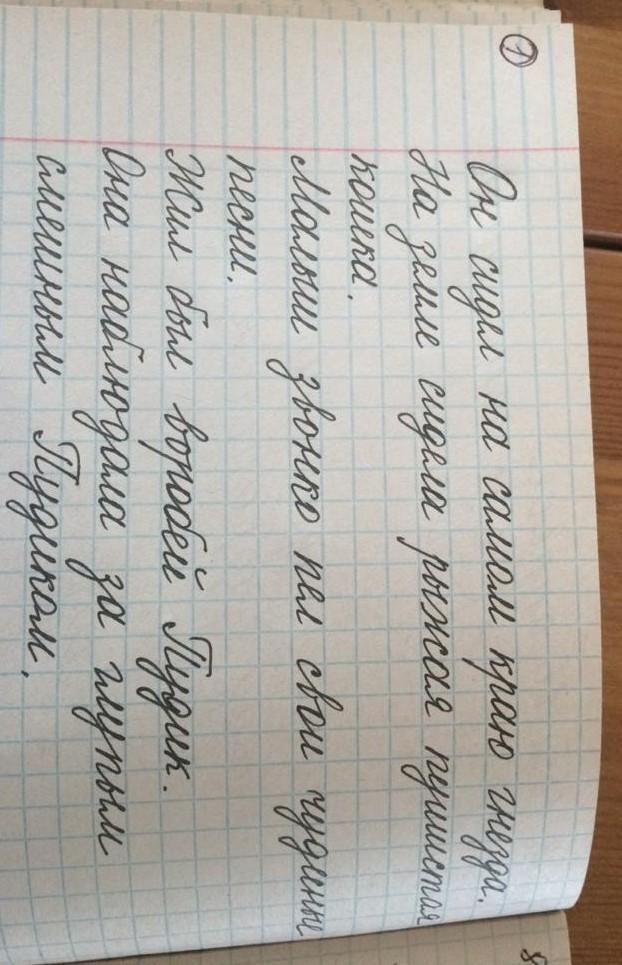 1
Он сидел на самом краю гнезда.
На земле сидела рыжая пушистая
кошка.
Малыш звонко пел свои чуденые
песни.
Жил был воробей Пудик.
Она наблюдала за глупым
смешным Пудиком.
8